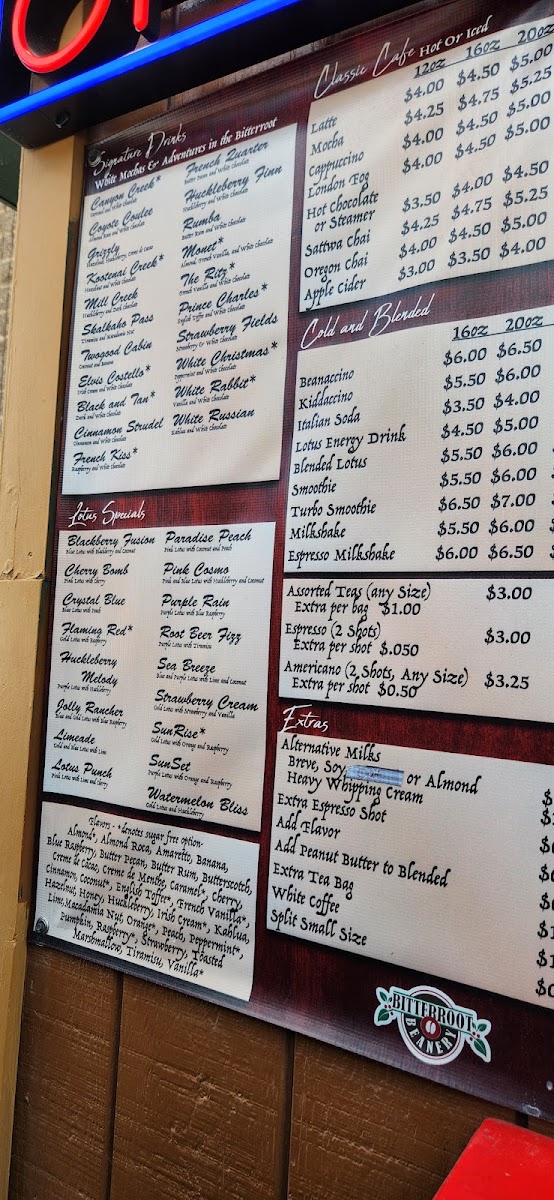 Signature Drinks
White Mochas & Adventures in the Bitterroot
Canyon Creek*
Caramel and White chocolate
Coyote Coulee
Almond Roca and White chocolate
Grizzly
Hazelnut, Huckleberry, Creme de Cacao
Kootenai Creek*
Hazelnut and White chocolate
Mill Creek
Huckleberry and Dark chocolate
Skalkaho Pass
Tiramisu and Macadamia Nut
Twogood Cabin
Coconut and Banana
Elvis Costello*
Irish Creme and White chocolate
Black and Tan*
Dark and White chocolate
Cinnamon Strudel
Cinnamon and White chocolate
French Kiss*
Raspberry and White chocolate
French Quarter
Butter Pecan and White chocolate
Huckleberry Finn
Huckleberry and White chocolate
Rumba
Butter Rum and White chocolate
Monet*
Almond, French Vanilla, and White chocolate
The Ritz*
French Vanilla and White chocolate
Prince Charles*
English Toffee and White chocolate
Strawberry Fields
Strawberry & White chocolate
White Christmas*
Peppermint and White chocolate
White Rabbit*
Vanilla and White chocolate
White Russian
Kahlua and White chocolate
Classic Cafe Hot Or Iced
12oz 16oz 20oz
Latte $4.00 $4.50 $5.00
Mocha $4.25 $4.75 $5.25
Cappuccino $4.00 $4.50 $5.00
London Fog $4.00 $4.50 $5.00
Hot Chocolate
or Steamer $3.50 $4.00 $4.50
Sattwa Chai $4.25 $4.75 $5.25
Oregon Chai $4.00 $4.50 $5.00
Apple Cider $3.00 $3.50 $4.00
Cold and Blended
16oz 20oz
Beanaccino $6.00 $6.50
Kiddaccino $5.50 $6.00
Italian Soda $3.50 $4.00
Lotus Energy Drink $4.50 $5.00
Blended Lotus $5.50 $6.00
Smoothie $5.50 $6.00
Turbo Smoothie $6.50 $7.00
Milkshake $5.50 $6.00
Espresso Milkshake $6.00 $6.50
Lotus Specials
Blackberry Fusion
Blue Lotus with Blackberry and Coconut
Cherry Bomb
Pink Lotus with Cherry
Crystal Blue
Blue Lotus with Peach
Flaming Red*
Gold Lotus with Raspberry
Huckleberry
Melody
Purple Lotus with Huckleberry
Jolly Rancher
Blue and Gold Lotus with Blue Raspberry
Limeade
Gold and Blue Lotus with Lime
Lotus Punch
Pink Lotus with Lime and Cherry
Paradise Peach
Pink Lotus with Coconut and Peach
Pink Cosmo
Pink and Blue Lotus with Huckleberry and Coconut
Purple Rain
Purple Lotus with Blue Raspberry
Root Beer Fizz
Purple Lotus with Tiramisu
Sea Breeze
Blue and Purple Lotus with Lime and Coconut
Strawberry Cream
Gold Lotus with Strawberry and Vanilla
SunRise*
Gold Lotus with Orange and Raspberry
SunSet
Purple Lotus with Orange and Raspberry
Watermelon Bliss
Gold Lotus and Huckleberry
Assorted Teas (any Size) $3.00
Extra per bag $1.00
Espresso (2 Shots) $3.00
Extra per shot $.050
Americano (2 Shots, Any Size) $3.25
Extra per shot $0.50
Extras
Alternative Milks
Breve, Soy or Almond
Heavy Whipping Cream
Extra Espresso Shot
Add Flavor
Add Peanut Butter to Blended
Extra Tea Bag
White Coffee
Split Small Size
Flavors - *denotes sugar free option-
Almond*, Almond Roca, Amaretto, Banana,
Blue Raspberry, Butter Pecan, Butter Rum, Butterscotch,
Creme de Cacao, Creme de Menthe, Caramel*, Cherry,
Cinnamon, Coconut*, English Toffee*, French Vanilla*,
Hazelnut, Honey, Huckleberry, Irish Cream*, Kahlua,
Lime, Macadamia Nut, Orange*, Peach, Peppermint*,
Pumpkin, Raspberry*, Strawberry, Toasted
Marshmallow, Tiramisu, Vanilla*
BITTERROOT
BEANERY